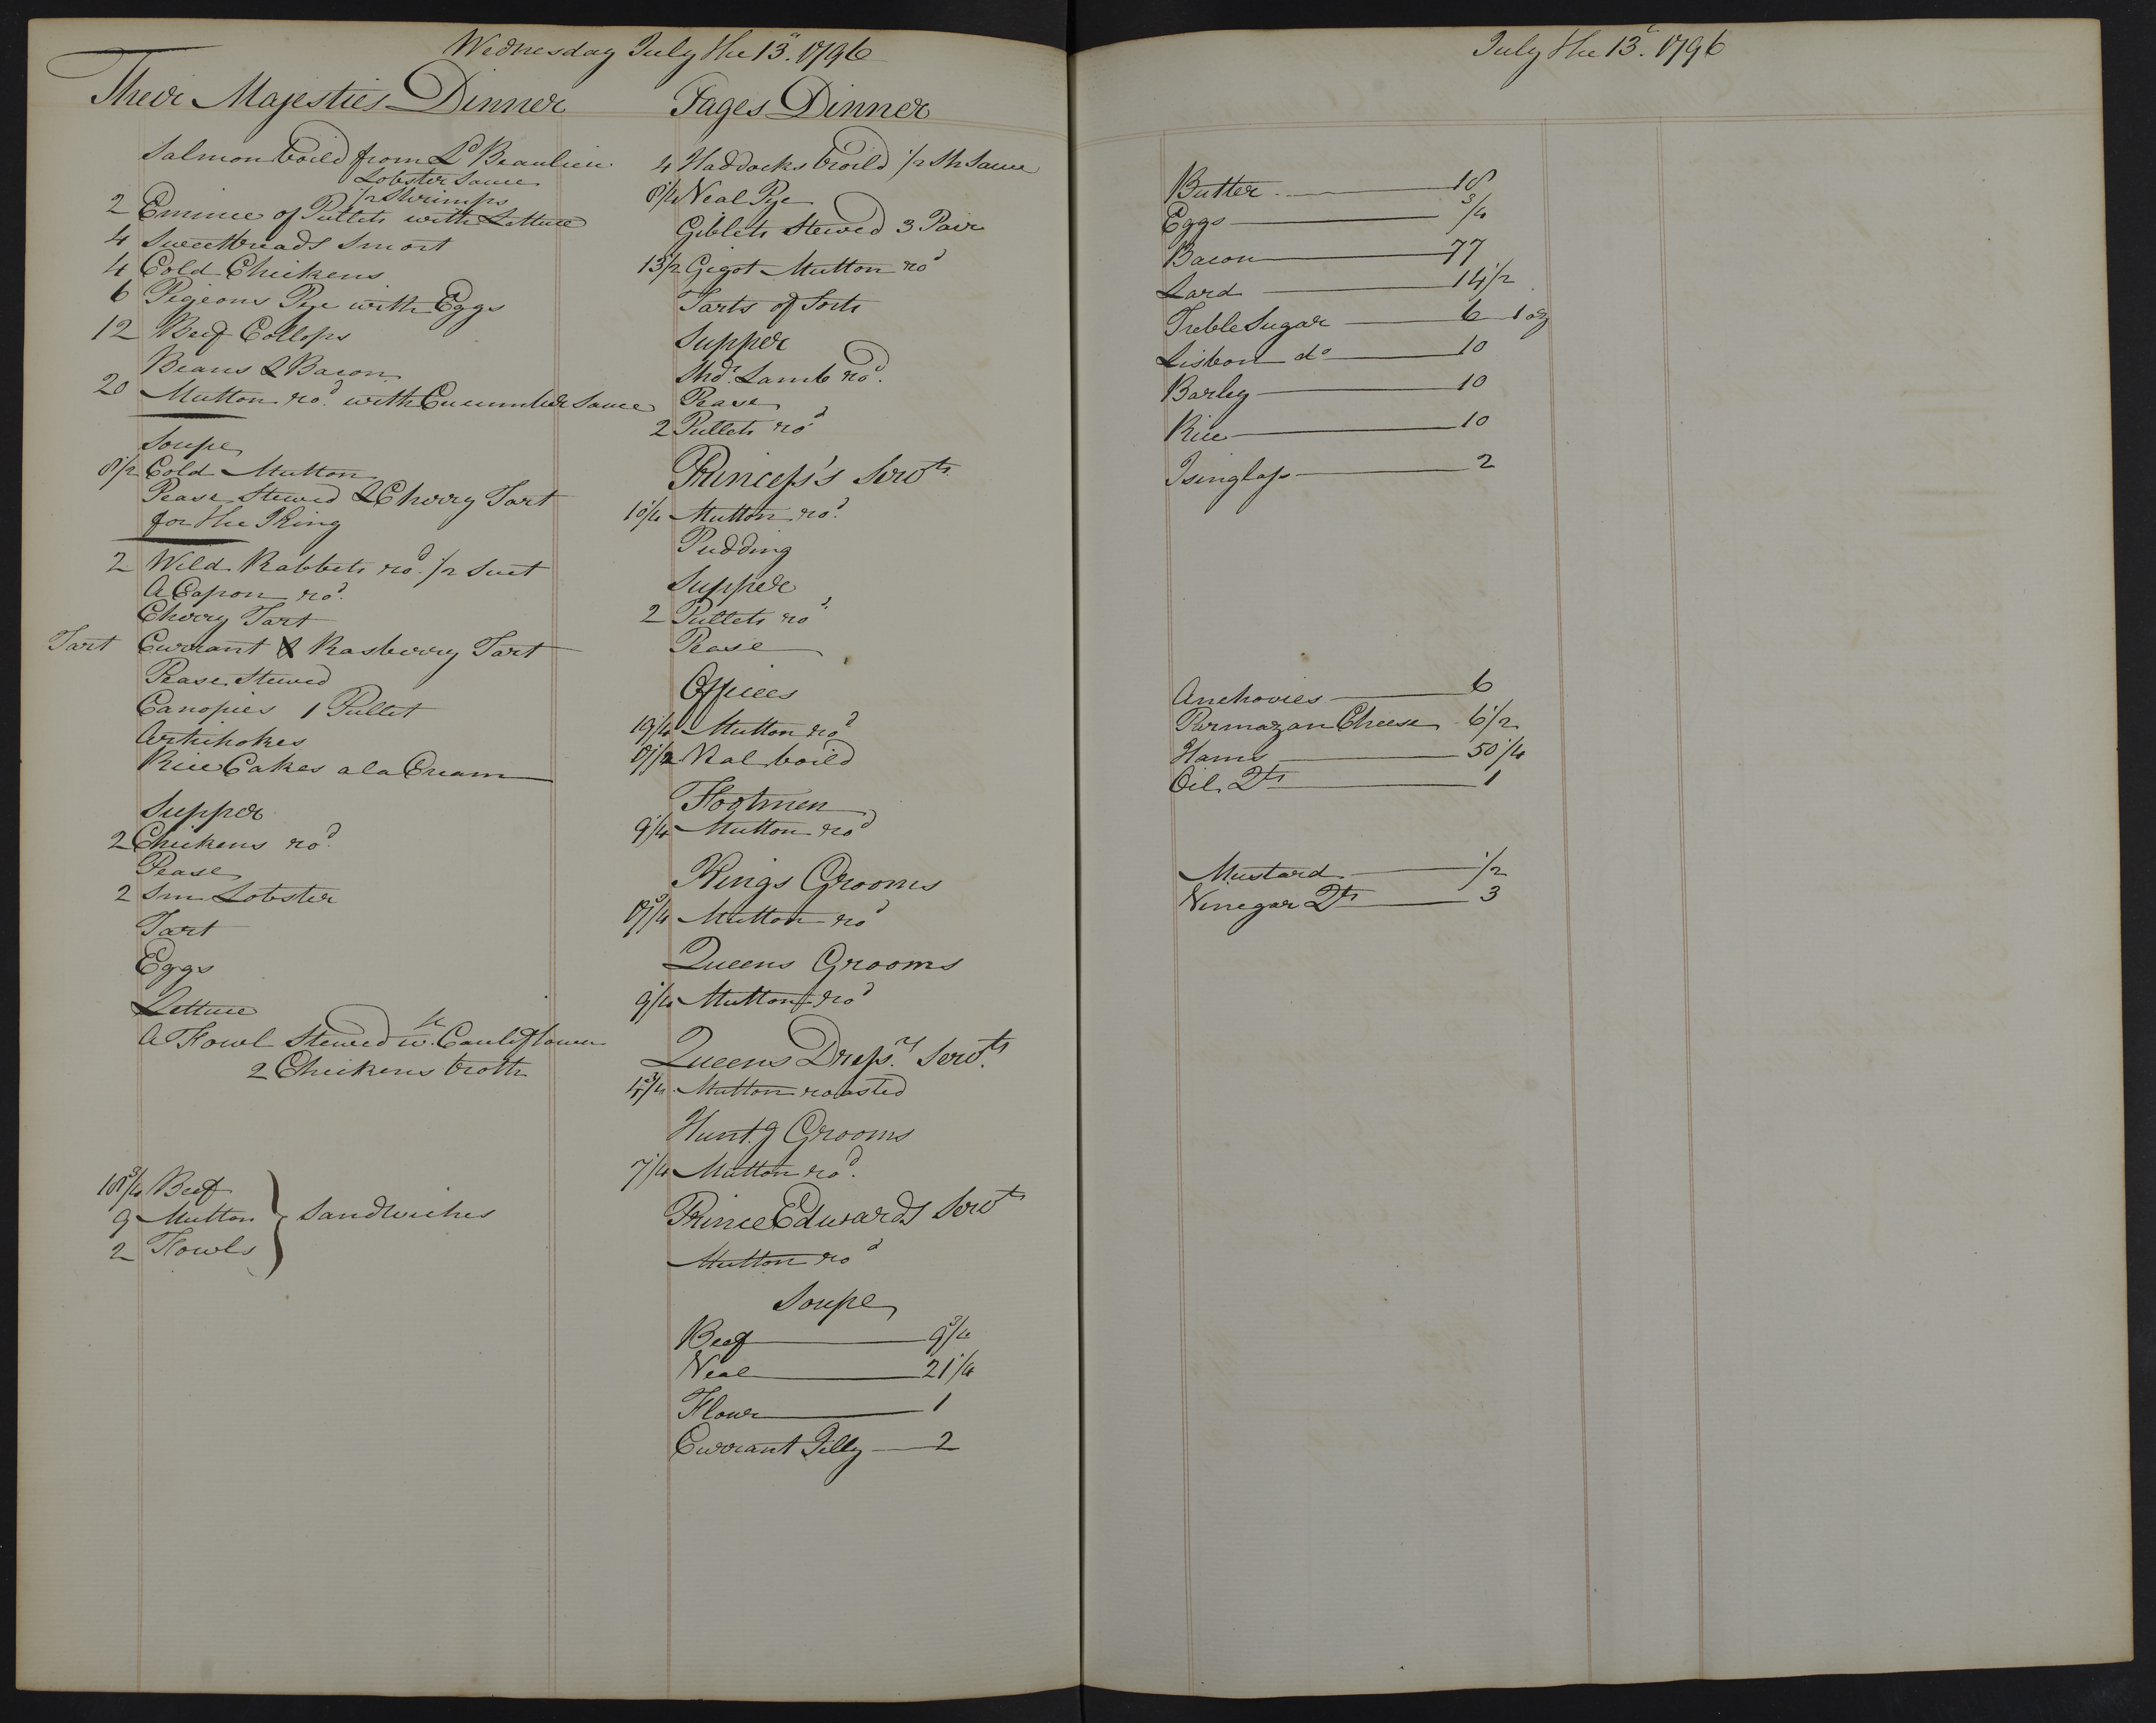 Wednesday July the 13th. 1796
Their Majesties Dinner
Salmon boild from Ld Beaulieu
Lobster Sauce
1/2 Shrimps
2 Emince of Pullets with Lettuce
4 Sweetbreads Smort
4 Cold Chickens
6 Pigeons Pye with Eggs
12 Beef Collops
Beans & Bacon
20 Mutton rod. with Cucumber Sauce
Soupe
8 1/2 Cold Mutton
Pease Stewed & Cherry Tart
for the King
2 Wild Rabbets rod. 1/2 Suet
A Capon rod.
Cherry Tart
Tart Currant & Rasberry Tart
Pease Stewed
Canopies 1 Pullet
Artichokes
Rice Cakes a la Cream
Supper
2 Chickens rod.
Pease
2 Sm Lobster
Tart
Eggs
Lettuce
A Fowl Stewed wth. Cauliflower
2 Chickens broth
3/4 Beef
9 Mutton
2 Fowls
Sandwiches
Pages Dinner
4 Haddocks broild 1/2 Sh Sauce
8 1/4 Veal Pye
Giblets Stewed 3 Pair
13 1/2 Gigot Mutton rod
Tarts of Sorts
Supper
Shdr. Lamb rod.
Pease
2 Pullets rod
Princess's Servts
10 1/4 Mutton rod.
Pudding
Supper
2 Pullets rod.
Pease
Offices
19 1/4 Mutton rod
Veal boild
Footmen
9 1/4 Mutton rod
Kings Grooms
Mutton rod
Queens Grooms
9 1/4 Mutton rod
Queens Dressrs. Servts.
4 3/4 Mutton roasted
Hunt.g Grooms
7 1/4 Mutton rod.
Prince Edwards Servts
Mutton rod
Soupe
Beef 9 3/4
Veal 21 1/4
Flour 1
Currant Jilly 2
July the 13th. 1796
Butter 18
Eggs 3/4
Bacon 77
Lard 14 1/2
Treble Sugar 6 1 oz
Lisbon do 10
Barley 10
Rice 10
Isinglass 2
Anchovies 6
Parmazan Cheese 6 1/2
Hams 50 1/4
Oil Qts 1
Mustard 1/2
Vinegar Qts 3